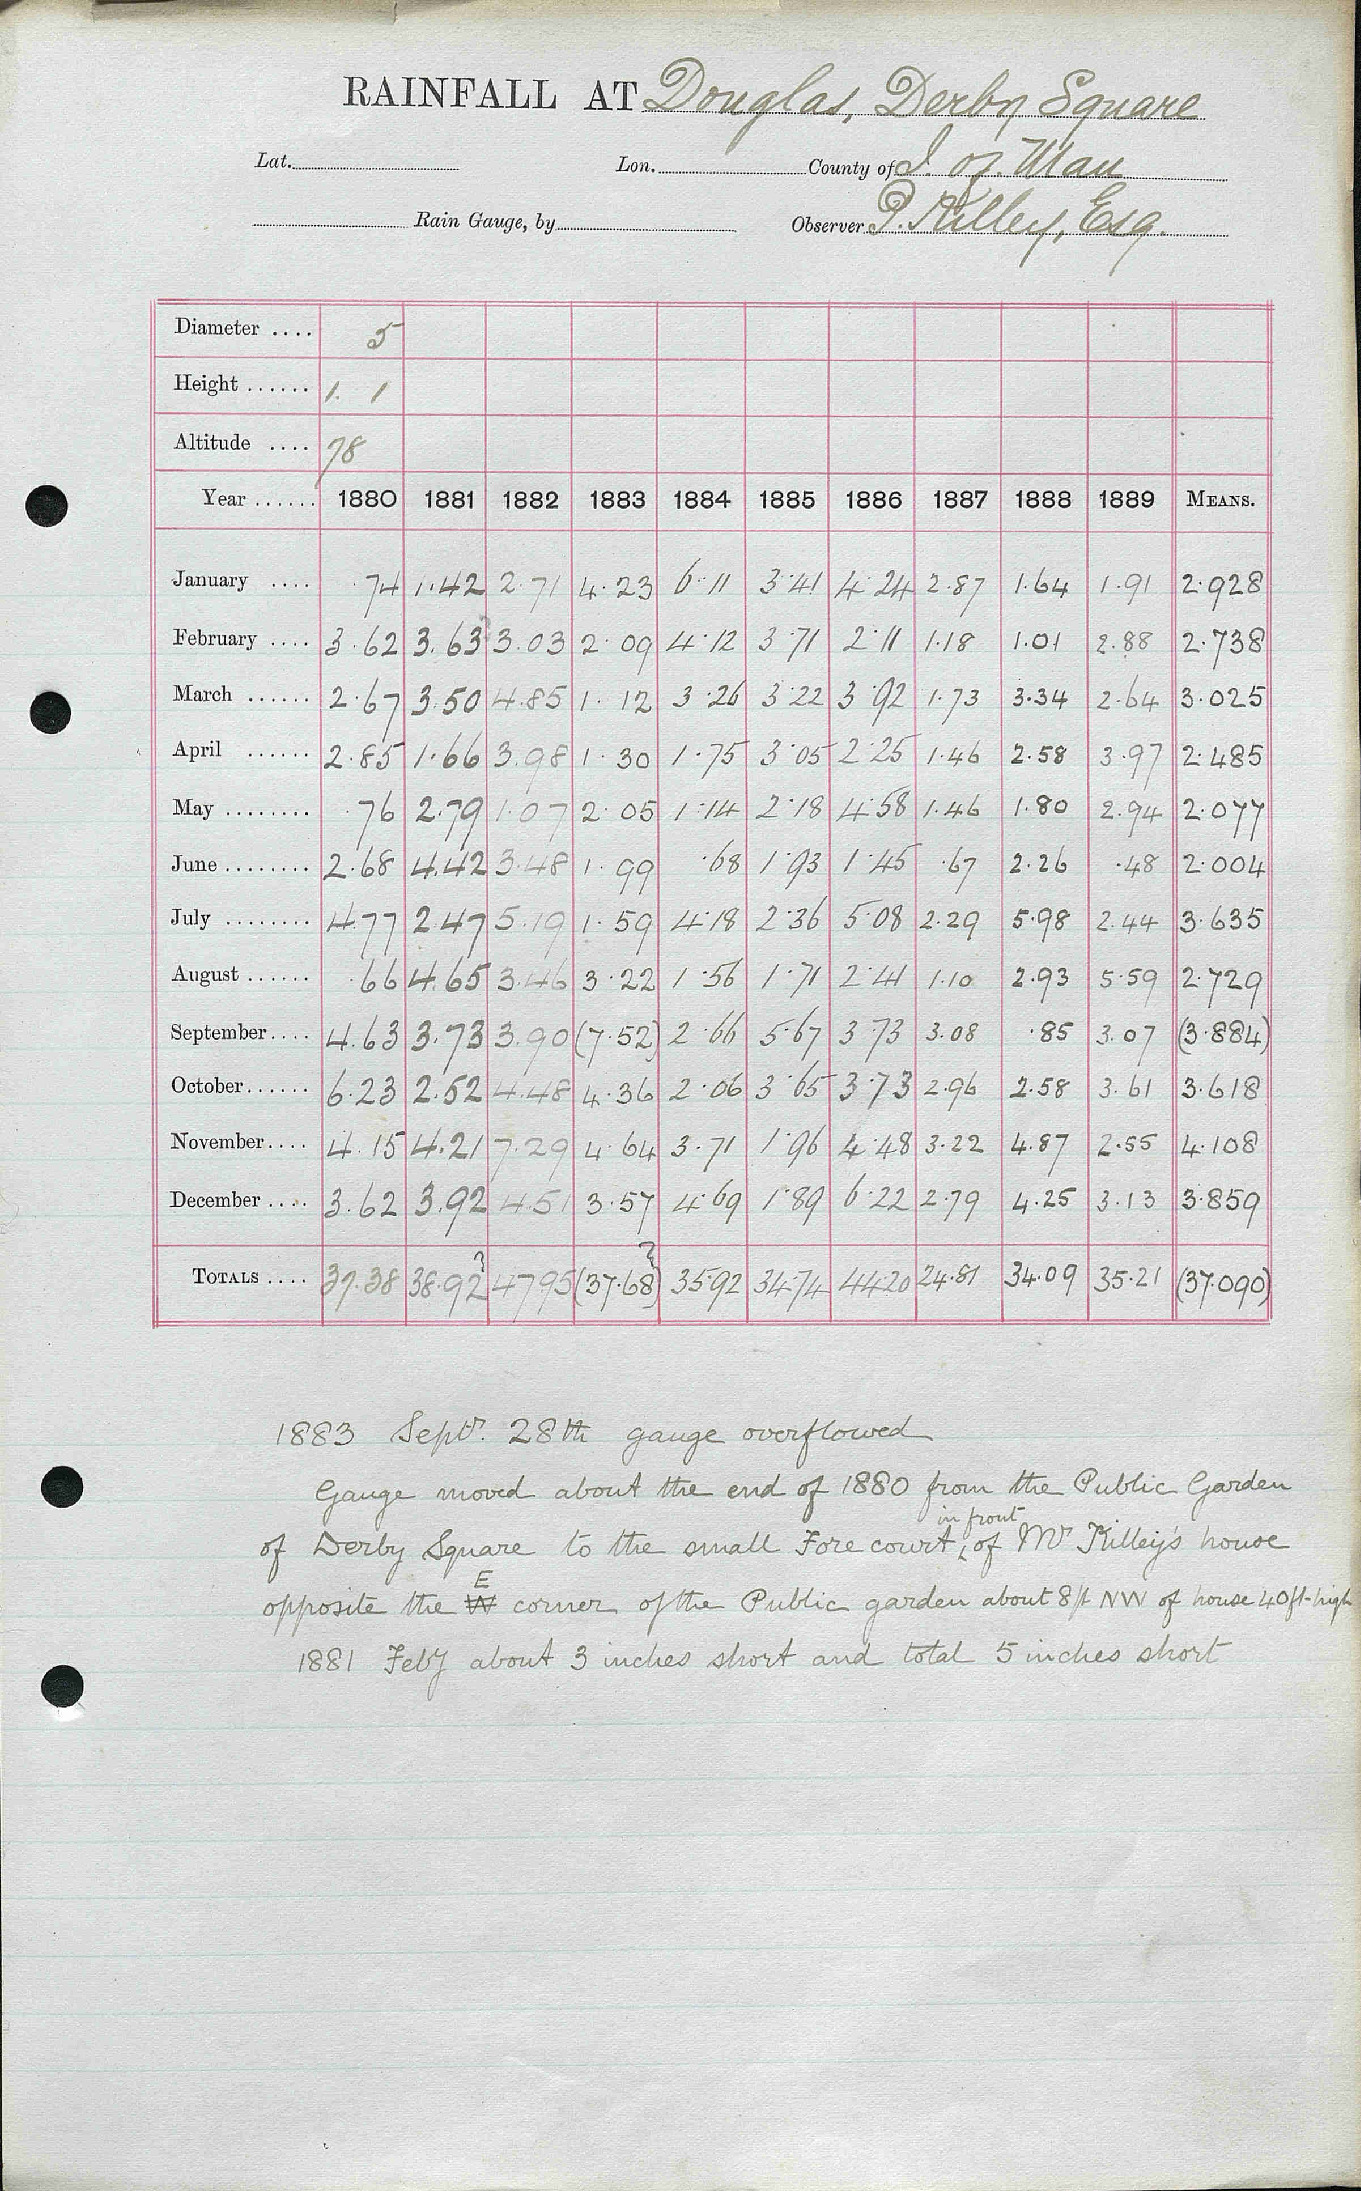 RAINFALL AT Douglas, Derby Square
Lat. Lon. County of I. of. Man
Rain Gauge, by Observer P. Killey, Esq.
Diameter .... 5
Height ...... 1. 1
Altitude .... 78
Year ...... 1880 1881 1882 1883 1884 1885 1886 1887 1888 1889 MEANS.
January .... .74 1.42 2.71 4.23 6.11 3.41 4.24 2.87 1.64 1.91 2.928
February .... 3.62 3.63? 3.03 2.09 4.12 3.71 2.11 1.18 1.01 2.88 2.738
March ...... 2.67 3.50 4.85 1.12 3.26 3.22 3.92 1.73 3.34 2.64 3.025
April ...... 2.85 1.66 3.98 1.30 1.75 3.05 2.25 1.46 2.58 3.97 2.485
May ........ .76 2.79 1.07 2.05 1.14 2.18 4.58 1.46 1.80 2.94 2.077
June ........ 2.68 4.42 3.48 1.99 .68 1.93 1.45 .67 2.26 .48 2.004
July ........ 4.77 2.47 5.19 1.59 4.18 2.36 5.08 2.29 5.98 2.44 3.635
August ...... .66 4.65 3.46 3.22 1.56 1.71 2.41 1.10 2.93 5.59 2.729
September.... 4.63 3.73 3.90 (7.52) 2.66 5.67 3.73 3.08 .85 3.07 (3.884)
October...... 6.23 2.52 4.48 4.36 2.06 3.65 3.73 2.96 2.58 3.61 3.618
November.... 4.15 4.21 7.29 4.64 3.71 1.96 4.48 3.22 4.87 2.55 4.108
December .... 3.62 3.92 4.51 3.57 4.69 1.89 6.22 2.79 4.25 3.13 3.859
TOTALS .... 37.38 38.92? 47.95 (37.68)? 35.92 34.74 44.20 24.81 34.09 35.21 (37.090)
1883 Septr. 28th gauge overflowed
Gauge moved about the end of 1880 from the Public Garden
of Derby Square to the small Fore court, in front of Mr Killey's house
opposite the W E corner of the Public garden about 8ft NW of house 40ft-high
1881 Feby about 3 inches short and total 5 inches short